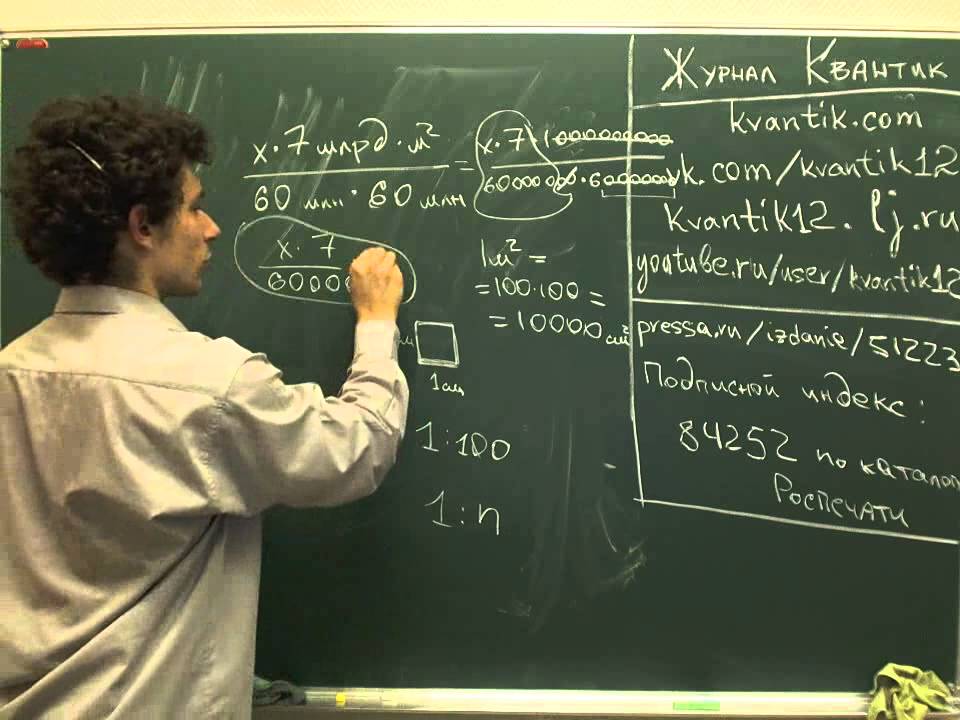 x · 7 млрд · м²
60 млн · 60 млн
= x · 7 · 1000000000
60000000 · 60000000
x · 7
60000
1м² =
= 100·100 =
= 10000 см²
1см
1:100
1:n
Журнал Квантик
kvantik.com
vk.com/kvantik12
kvantik12.lj.ru
youtube.ru/user/kvantik12
pressa.ru/izdanie/51223
Подписной индекс:
84252 по катало
Роспечати